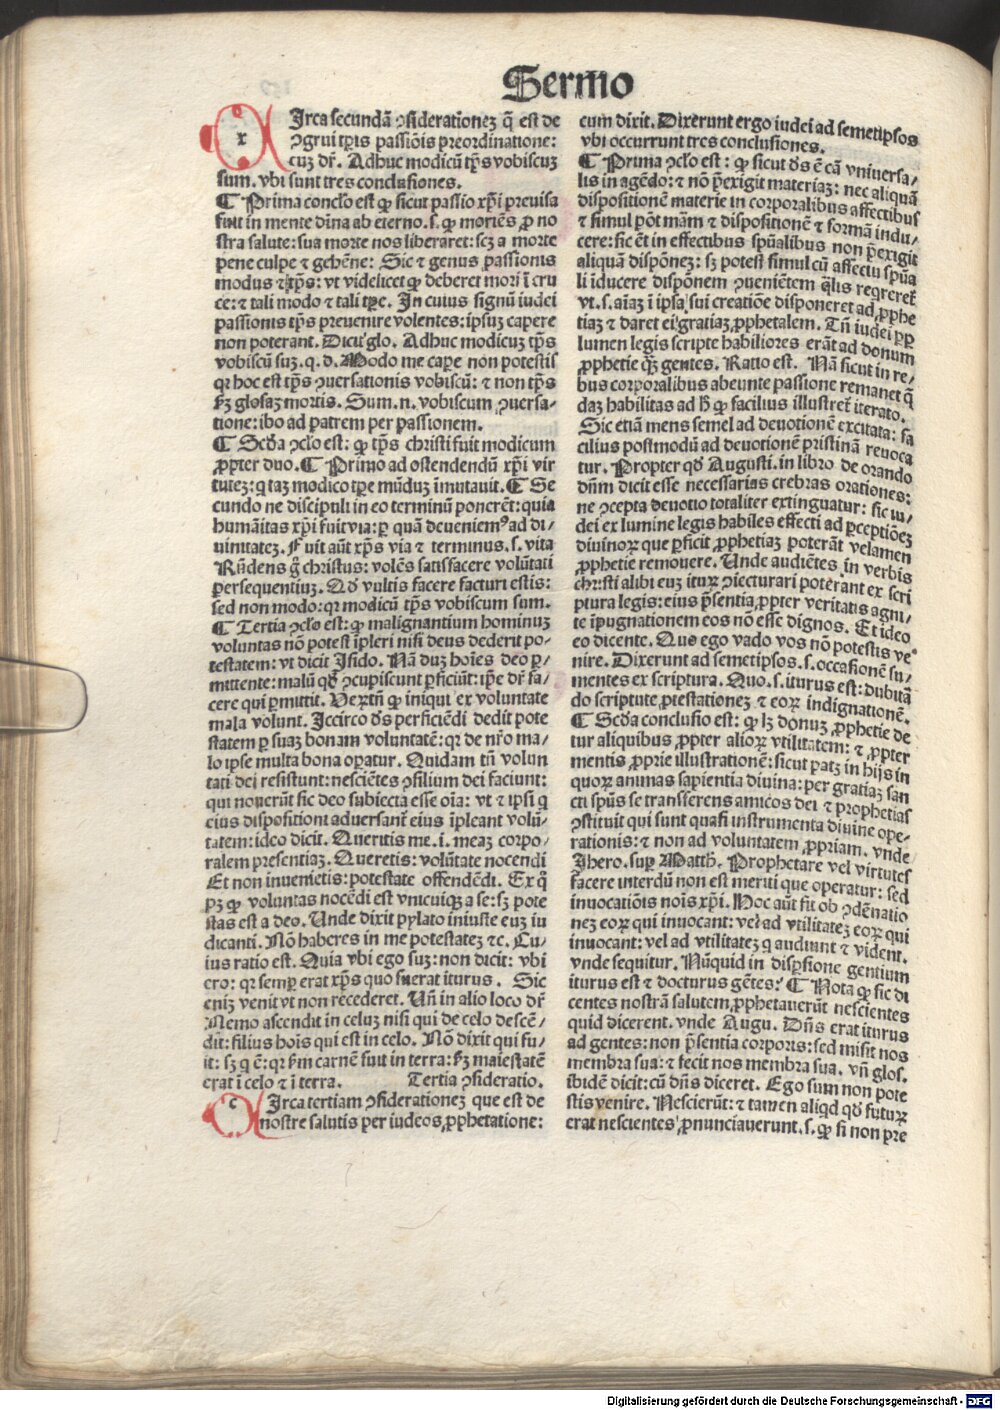 Sermo
x Irca secundā ꝯsiderationeꝫ q̄ est de
ꝯgrui tꝑis passiōis preordinatione:
cuꝫ dr̄. Adhuc modicū tꝑs vobiscuꝫ
sum. vbi sunt tres conclusiones.
¶ Prima conclo est ꝙ sicut passio xp̄i previsa
fuit in mente diīna ab eterno. s. ꝙ moriēs ꝓ no
stra salute: sua morte nos liberaret: scꝫ a morte
pene culpe ⁊ gehēne: Sic ⁊ genus passionis
modus ⁊ tꝑs: vt videlicet ꝙ deberet mori ī cru
ce: ⁊ tali modo ⁊ tali tꝑe. In cuius signū iudei
passionis tꝑs prevenire volentes: ipsuꝫ capere
non poterant. Dicit glo. Adhuc modicuꝫ tꝑs
vobiscū suꝫ. q. d. Modo me cape non potestis
qꝛ hoc est tꝑs ꝯversationis vobiscū: ⁊ non tꝑs
ẜm glosaꝫ mortis. Sum. n. vobiscum ꝯversa-
tione: ibo ad patrem per passionem.
¶ Scd̄a ꝯclo est: ꝙ tꝑs christi fuit modicum
ꝓpter duo. ¶ Primo ad ostendendū xp̄i vir
tuteꝫ: q taꝫ modico tꝑe mūduꝫ īmutauit. ¶ Se
cundo ne discipuli in eo terminū ponerēt: quia
humāitas xp̄i fuit via: ꝑ quā deueniemꝰ ad di-
uinitateꝫ. Fuit aūt xp̄s via ⁊ terminus. s. vita
Rn̄dens g̊ christus: volēs satisfacere volūtati
ꝑsequentiuꝫ. Qd̄ vultis facere facturi estis:
sed non modo: qꝛ modicū tꝑs vobiscum sum.
¶ Tertia ꝯclo est: ꝙ malignantium hominuꝫ
voluntas nō potest īpleri nisi deus dederit po-
testatem: vt dicit Isido. Nā duꝫ hoīes deo ꝑ-
mittente: malū qd̄ ꝯcupiscunt ꝑficiūt: ip̄e dr̄ fa-
cere qui ꝑmittit. Veꝝtn̄ ꝙ iniqui ex voluntate
mala volunt. Iccirco d̄s perficiēdi dedit pote
statem ꝑ suaꝫ bonam voluntatē: qꝛ de nr̄o ma-
lo ipse multa bona oꝑatur. Quidam tn̄ volun
tati dei resistunt: nesciētes ꝯsilium dei faciunt:
qui nouerūt sic deo subiecta esse oīa: vt ⁊ ipsi q
eius dispositioni aduersant̄ eius īpleant volū-
tatem: ideo dicit. Queritis me. i. meaꝫ corpo-
ralem presentiaꝫ. Queretis: volūtate nocendi
Et non invenietis: potestate offendēdi. Ex q̊
pꝫ ꝙ voluntas nocēdi est vnicuiqꝫ a se: sꝫ pote
stas est a deo. Unde dixit pylato iniuste euꝫ iu
dicanti. Nō haberes in me potestateꝫ ⁊c. Cu-
ius ratio est. Quia vbi ego suꝫ: non dicit: vbi
ero: qꝛ semꝑ erat xp̄s quo fuerat iturus. Sic
eniꝫ venit vt non recederet. Un̄ in alio loco dr̄
Nemo ascendit in celuꝫ nisi qui de celo descē-
dit: filius hoīs qui est in celo. Nō dixit qui fu-
it: sꝫ q ē: qꝛ ẜm carnē fuit in terra: ẜꝫ maiestatē
erat ī celo ⁊ ī terra. Tertia ꝯsideratio.
c Irca tertiam ꝯsiderationeꝫ que est de
nostre salutis per iudeos ꝓphetatione:
cum dixit. Dixerunt ergo iudei ad semetipsos
vbi occurrunt tres conclusiones.
¶ Prima ꝯclo est: ꝙ sicut d̄s ē cā vniuersa-
lis in agēdo: ⁊ nō p̄exigit materiaꝫ: nec aliquā
dispositionē materie in corporalibus affectibus
⁊ simul pōt mām ⁊ dispositionē ⁊ formā indu-
cere: sic ēt in effectibus spūalibus non p̄exigit
aliquā disponeꝫ: sꝫ potest simul cū affectu spūa
li īducere disponēm ꝯuenietēm q̄lis reqreret̄
vt. s. aīaꝫ ī ipsa sui creatiōe disponeret ad ꝓphe
tiaꝫ ⁊ daret ei gratiaꝫ ꝓphetalem. Tn̄ iudei ꝓpꝑ
lumen legis scripte habiliores erāt ad donum
ꝓphetie qꝫ gentes. Ratio est. Nā sicut in re-
bus corporalibus abeunte passione remanet q̄
daꝫ habilitas ad h̄ ꝙ facilius illustret̄ iterato.
Sic etiā mens semel ad deuotionē excitata: fa
cilius postmodū ad deuotionē pristinā reuoca
tur. Propter qd̄ Augusti. in libro de orando
dn̄m dicit esse necessarias crebras orationes:
ne ꝯcepta deuotio totaliter extinguatur: sic iu-
dei ex lumine legis habiles effecti ad ꝑceptiōeꝫ
diuinoꝝ que ꝑficit ꝓphetiaꝫ poterāt velamen
ꝓphetie remouere. Unde audiētes in verbis
christi alibi euꝫ ituꝝ ꝯiecturari poterant ex scri
ptura legis: eius p̄sentia ꝓpter veritatis agni-
te īpugnationem eos nō esse dignos. Et ideo
eo dicente. Quo ego vado vos nō potestis ve-
nire. Dixerunt ad semetipsos. s. occasionē su-
mentes ex scriptura. Quo. s. iturus est: dubitā
do scripture ꝓtestationeꝫ ⁊ eoꝝ indignationē.
¶ Scd̄a conclusio est: ꝙ lꝫ donuꝫ ꝓphetie de
tur aliquibus ꝓpter alioꝝ vtilitatem: ⁊ ꝓpter
mentis ꝓprie illustrationē: sicut patꝫ in hijs in
quoꝝ animas sapientia diuina: per gratiaꝫ san
cti spūs se transferens amicos dei ⁊ prophetias
ꝯstituit qui sunt quasi instrumenta diuine ope-
rationis: ⁊ non ad voluntatem ꝓpriam. vnde
Jhero. suꝑ Matth. Prophetare vel virtutes
facere interdū non est meriti que operatur: sed
inuocatiōis nois xp̄i. Hoc aūt fit ob ꝯdēnatio
neꝫ eoꝝ qui inuocant: vel ad vtilitateꝫ eoꝝ qui
inuocant: vel ad vtilitateꝫ q audiunt ⁊ vident.
vnde sequitur. Nūquid in disꝑsione gentium
iturus est ⁊ docturus gētes? ¶ Nota ꝙ sic di
centes nostrā salutem ꝓphetauerūt nescientes
quid dicerent. vnde Augu. Dn̄s erat iturus
ad gentes: non p̄sentia corporis: sed misit nos
membra sua: ⁊ fecit nos membra sua. vn̄ glos.
ibidē dicit: cū dn̄s diceret. Ego sum non pote
stis venire. Nescierūt: ⁊ tamen aliqd qd̄ futuꝝ
erat nescientes ꝓnunciauerunt. s. ꝙ si non pre
Digitalisierung gefördert durch die Deutsche Forschungsgemeinschaft - DFG